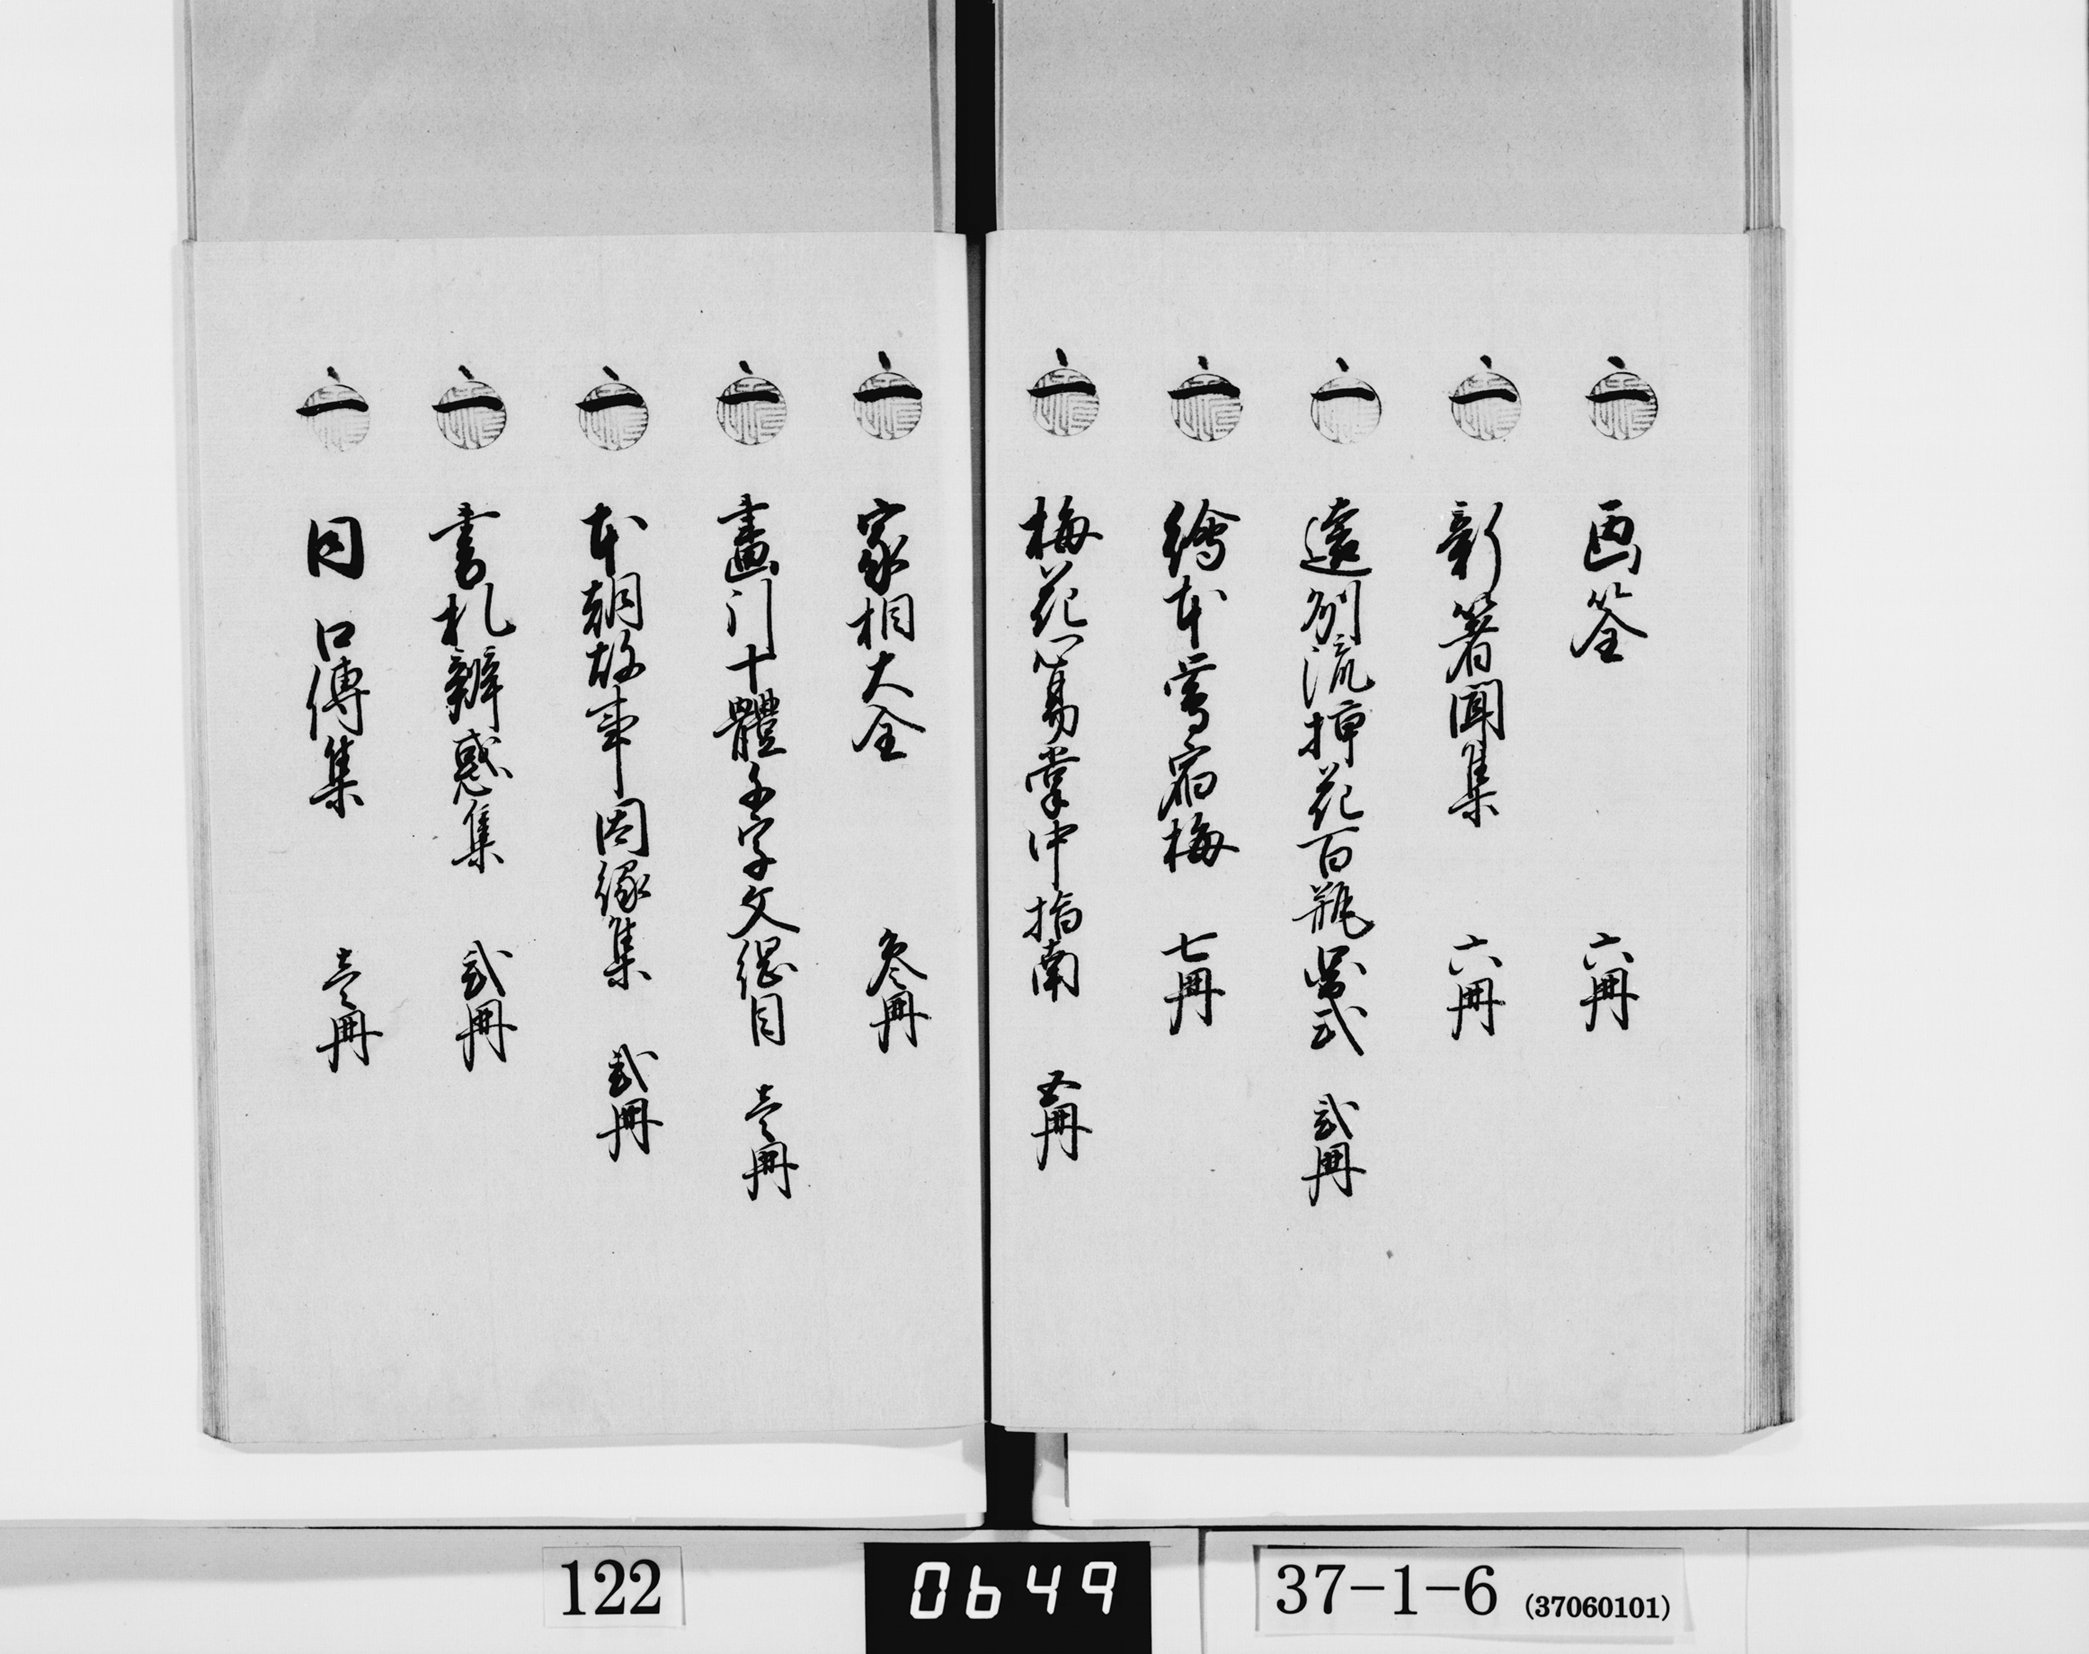 一 画筌 六冊
一 新著聞集 六冊
一 遠州流挿花百瓶図式 弐冊
一 繪本鶯宿梅 七冊
一 梅花心易掌中指南 五冊
一 家相大全 叄冊
一 畫门十體千字文綱目 壱冊
一 本朝故事因縁集 弐冊
一 書札辨惑集 弐冊
一 同 口傳集 壱冊
122
0649
37-1-6 (37060101)